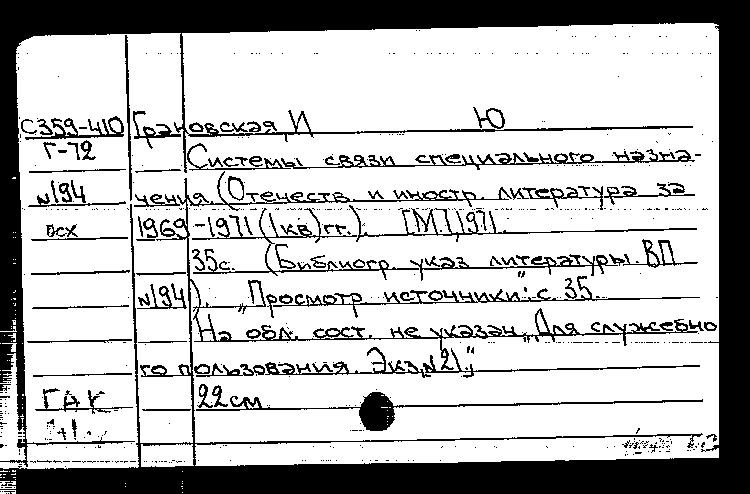 С359-410 Грановская, И Ю
Г-72 Системы связи специального назна-
№194 чения. (Отечеств. и иностр. литература за
осх 1969-1971 (I кв) гг.). [М.], 1971.
35с. (Библиогр. указ литературы. ВП
№194). „Просмотр источники": с. 35.
На обл. сост. не указан. „Для служебно
го пользования. Экз. №21."
ГАК 22см